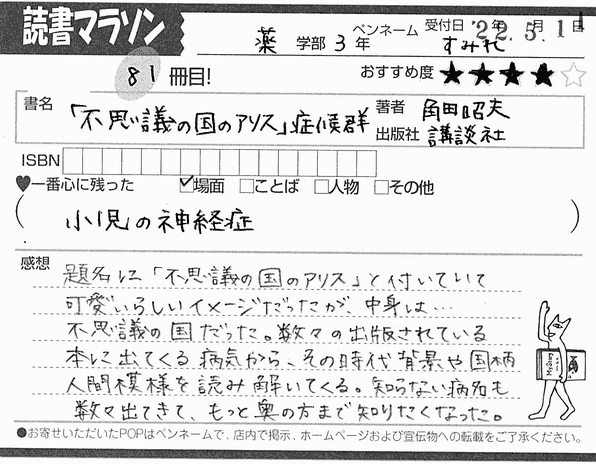 読書マラソン
薬 学部 3 年 ペンネーム すみれ 受付日 '22年5月1日
81 冊目!
おすすめ度 ★★★★☆
書名 「不思議の国のアリス」症候群
著者 角田昭夫
出版社 講談社
ISBN
♥一番心に残った ☑場面 □ことば □人物 □その他
(小児の神経症)
感想
題名に「不思議の国のアリス」と付いていて
可愛いらしいイメージだったが、中身は…
不思議の国だった。数々の出版されている
本に出てくる病気から、その時代背景や国柄
人間模様を読み解いてくる。知らない病名も
数々出てきて、もっと奥の方まで知りたくなった。
●お寄せいただいたPOPはペンネームで、店内で掲示、ホームページおよび宣伝物への転載をご了承ください。